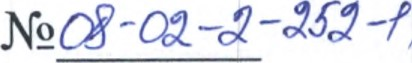 №08-02-2-252-1,